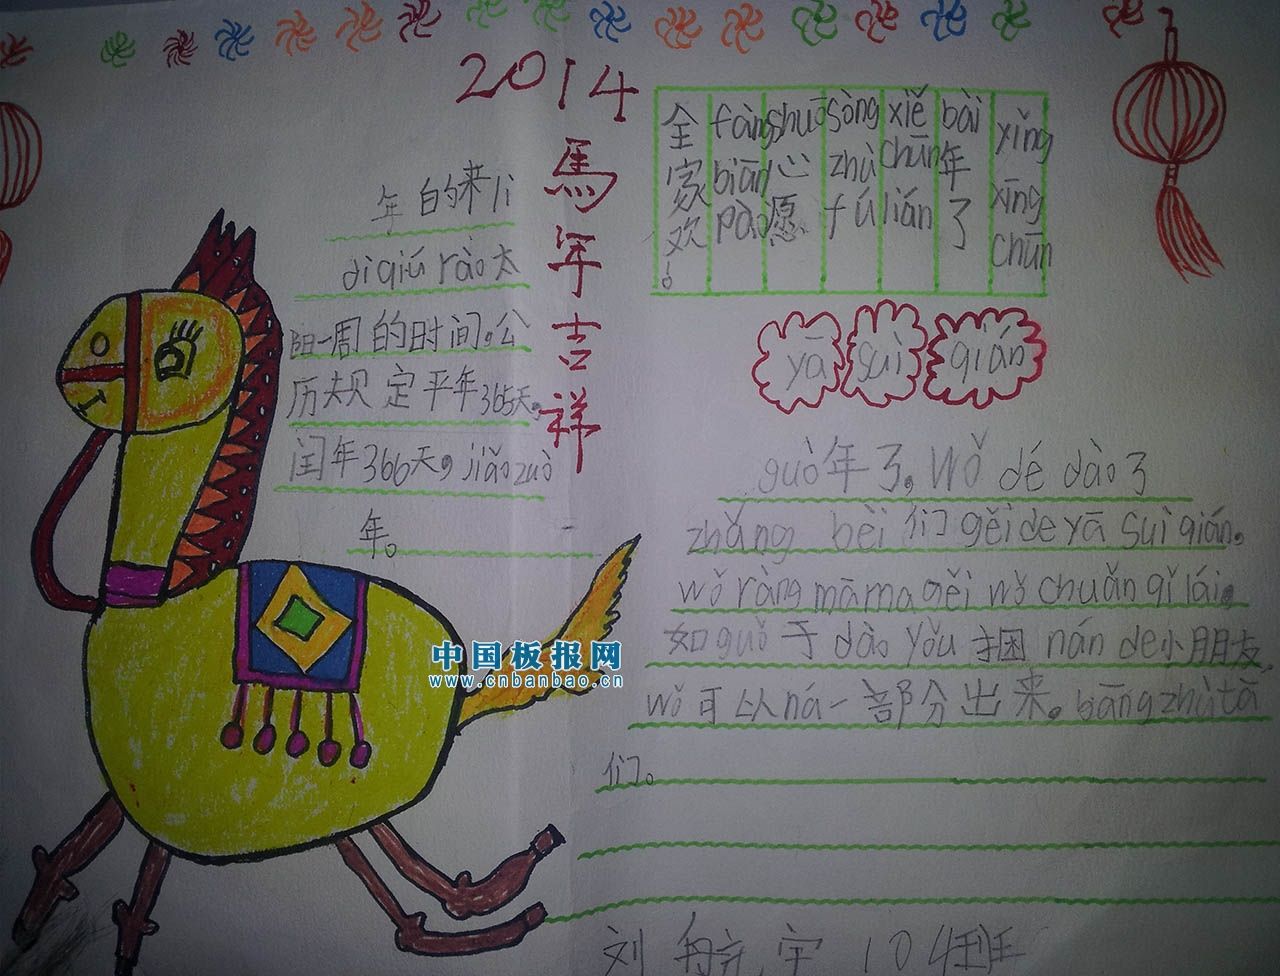 2014
馬年吉祥
年的来li
di qiú rào太
阳一周的时间。公
历规定平年365天。
闰年366天。jiāo zuò
年。一
yíng xīng chūn
bài年了
xiě chūn lián
sòng zhù fú
shuō心愿
fàng biān pào
全家欢。
yā suì qián
guò年了。wǒ dé dào了
zhǎng bèi们gěi de yā suì qián。
wǒ ràng mā ma gěi wǒ chuǎn qǐ lái。
如guǒ于dào yǒu 捆nán de小朋友，
wǒ可以ná一部分出来。bāng zhù tā
们。
刘航宇 104班
中国板报网
www.cnbanbao.cn